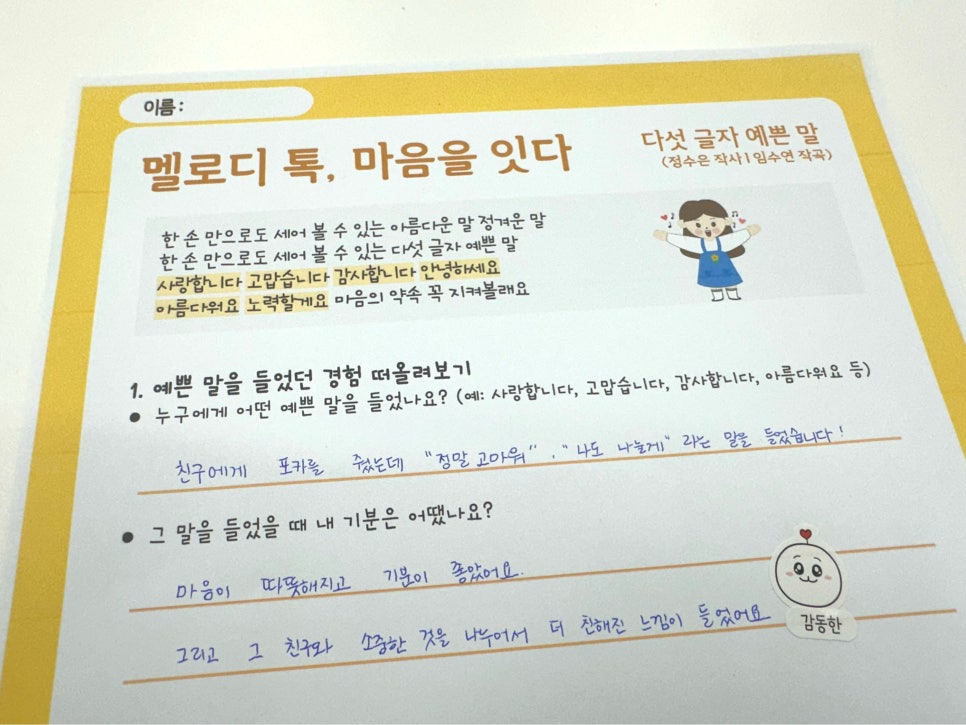 이름:
멜로디 톡, 마음을 잇다
다섯 글자 예쁜 말
(정수은 작사 | 임수연 작곡)
한 손 만으로도 세어 볼 수 있는 아름다운 말 정겨운 말
한 손 만으로도 세어 볼 수 있는 다섯 글자 예쁜 말
사랑합니다 고맙습니다 감사합니다 안녕하세요
아름다워요 노력할게요 마음의 약속 꼭 지켜볼래요
1. 예쁜 말을 들었던 경험 떠올려보기
● 누구에게 어떤 예쁜 말을 들었나요? (예: 사랑합니다, 고맙습니다, 감사합니다, 아름다워요 등)
친구에게 포카를 줬는데 "정말 고마워", "나도 나눌게" 라는 말을 들었습니다!
● 그 말을 들었을 때 내 기분은 어땠나요?
마음이 따뜻해지고 기분이 좋았어요.
그리고 그 친구와 소중한 것을 나누어서 더 친해진 느낌이 들었어요
감동한